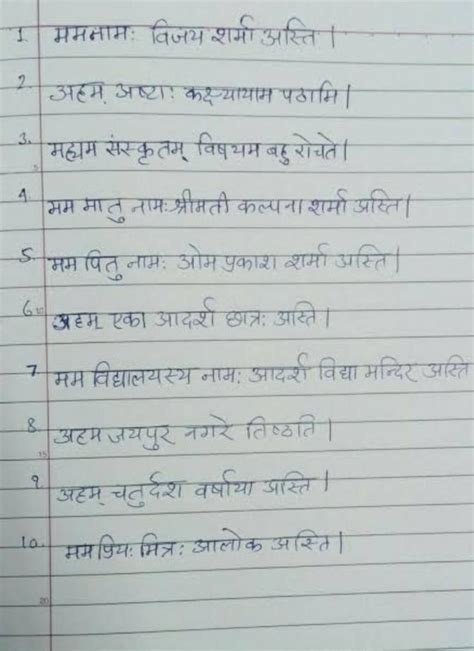 1 ममनामः विजय शर्मा अस्ति |
2. अहम् अष्टाः कक्ष्यायाम पठामि |
3. मह्यम संस्कृतम् विषयम बहु रोचते |
4. मम मातु नामः श्रीमती कल्पना शर्मा अस्ति |
5. मम पितु नामः ओम प्रकाश शर्मा अस्ति |
6. अहम् एका आदर्श छात्रः अस्ति |
7 मम विद्यालयस्य नामः आदर्श विद्या मन्दिर अस्ति
8. अहम जयपुर नगरे तिष्ठति |
9. अहम् चतुर्दश वर्षाया अस्ति |
10. मम प्रियः मित्रः आलोक अस्ति |